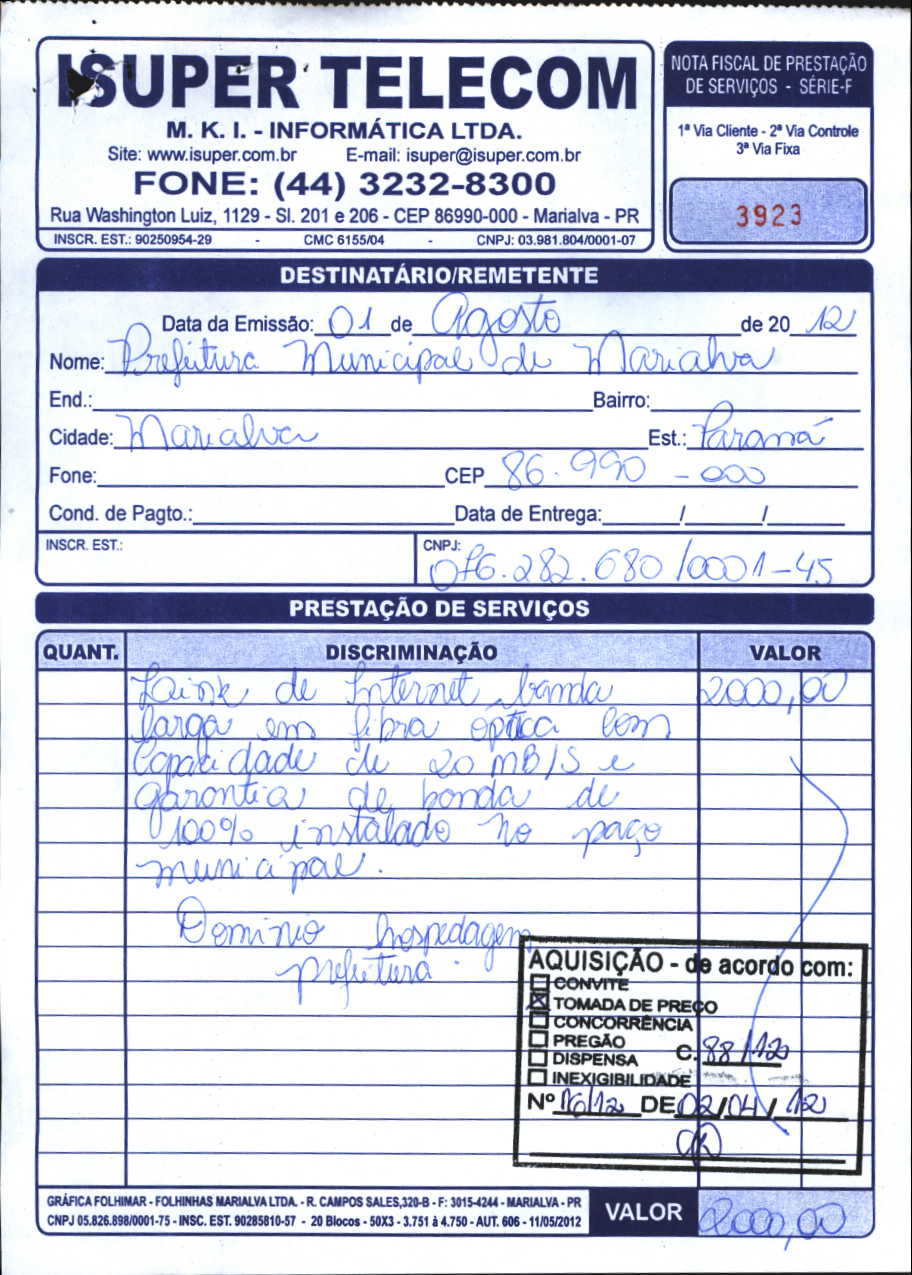 ISUPER TELECOM
M. K. I. - INFORMÁTICA LTDA.
Site: www.isuper.com.br E-mail: isuper@isuper.com.br
FONE: (44) 3232-8300
Rua Washington Luiz, 1129 - Sl. 201 e 206 - CEP 86990-000 - Marialva - PR
INSCR. EST.: 90250954-29 - CMC 6155/04 - CNPJ: 03.981.804/0001-07
NOTA FISCAL DE PRESTAÇÃO
DE SERVIÇOS - SÉRIE-F
1ª Via Cliente - 2ª Via Controle
3ª Via Fixa
3923
DESTINATÁRIO/REMETENTE
Data da Emissão: 01 de Agosto de 20 12
Nome: Prefeitura Municipal de Marialva
End.: Bairro:
Cidade: Marialva Est.: Paraná
Fone: CEP 86.990-000
Cond. de Pagto.: Data de Entrega: / /
INSCR. EST.: CNPJ: 076.282.680/0001-45
PRESTAÇÃO DE SERVIÇOS
QUANT. DISCRIMINAÇÃO VALOR
Laink de Internet banda 2000,00
larga em fibra óptica com
Capacidade de 20 MB/S e
garantia de banda de
100% instalado no paço
municipal.
Dominio hospedagem
prefeitura.
AQUISIÇÃO - de acordo com:
CONVITE
TOMADA DE PREÇO
CONCORRÊNCIA
PREGÃO C. 88/12
DISPENSA
INEXIGIBILIDADE
Nº 16/12 DE 02/04/12
GRÁFICA FOLHIMAR - FOLHINHAS MARIALVA LTDA. - R. CAMPOS SALES,320-B - F: 3015-4244 - MARIALVA - PR
CNPJ 05.826.898/0001-75 - INSC. EST. 90285810-57 - 20 Blocos - 50X3 - 3.751 à 4.750 - AUT. 606 - 11/05/2012
VALOR 2000,00